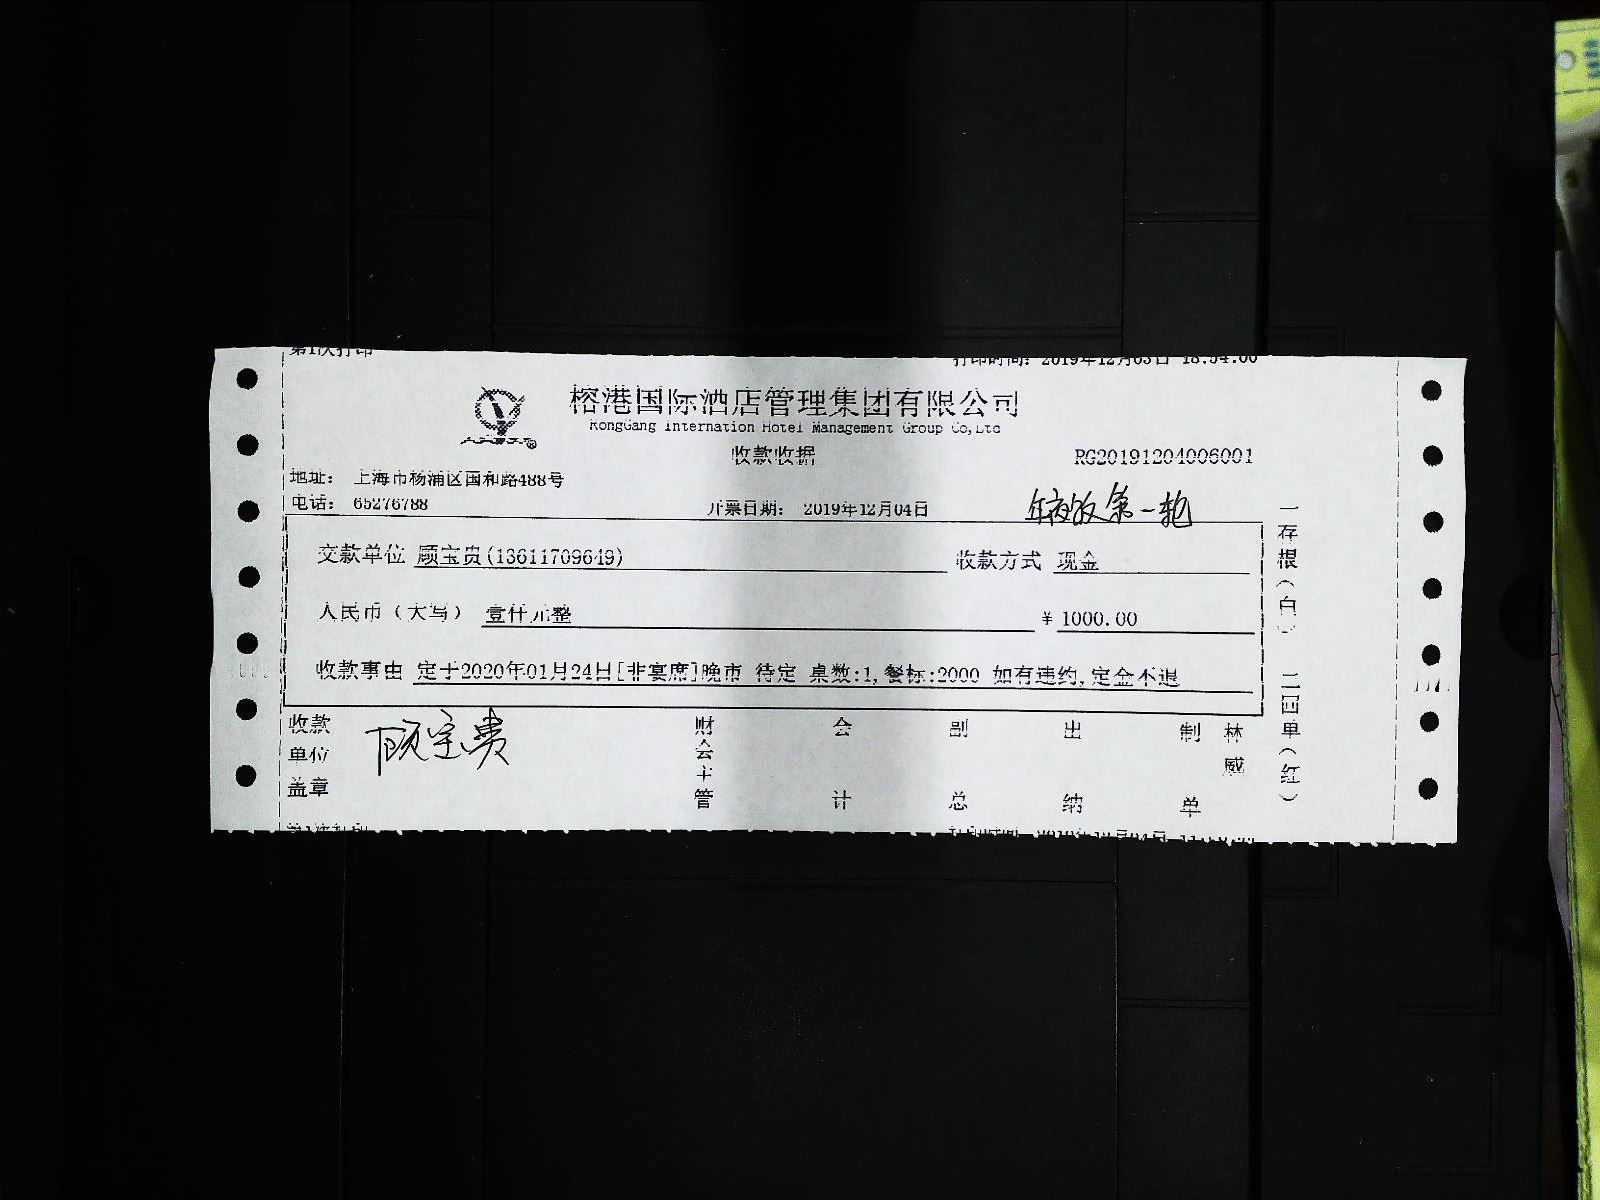 第1次打印 打印时间：2019年12月03日 18:54:00
榕港国际酒店管理集团有限公司
RongGang Internation Hotel Management Group Co,Ltd
收款收据 RG20191204006001
地址： 上海市杨浦区国和路488号
电话： 65276788 开票日期： 2019年12月04日 年夜饭第一轮
交款单位 顾宝贵(13611709649) 收款方式 现金
人民币（大写） 壹仟元整 ￥ 1000.00
收款事由 定于2020年01月24日[非宴席]晚市 待定 桌数:1,餐标:2000 如有违约,定金不退
收款单位盖章 顾宝贵 财会主管 会计 副总 出纳 制单 林威
一存根（白） 二回单（红）